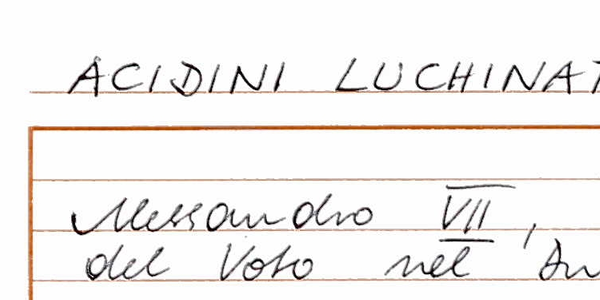 ACIDINI LUCHINAT
Alessandro VII,
del Voto nel Du